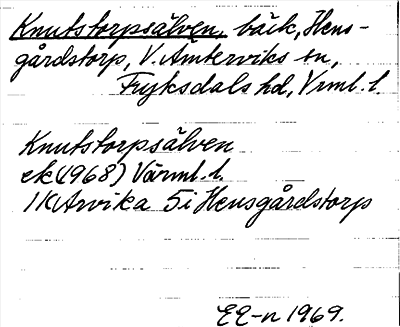 Knutstorpsälven, bäck, Hens-
gårdstorp, V. Ämterviks sn,
Fryksdals hd, Vrml. l.
Knutstorpsälven
ek (1968) Värml. l.
1K Arvika 5i Hensgårdstorp
EQ-n 1969.